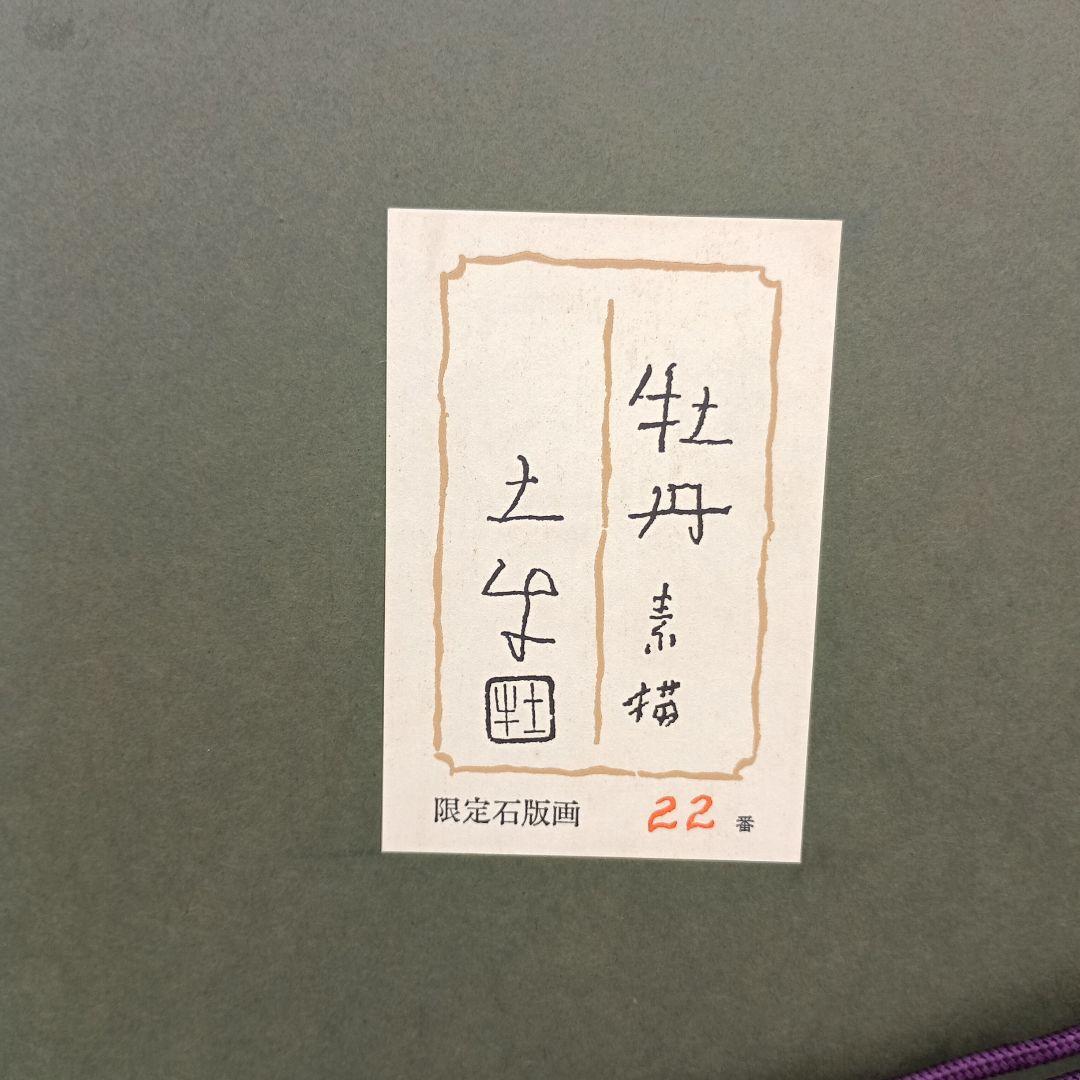 牡丹素描
土牛
牡
限定石版画 22番